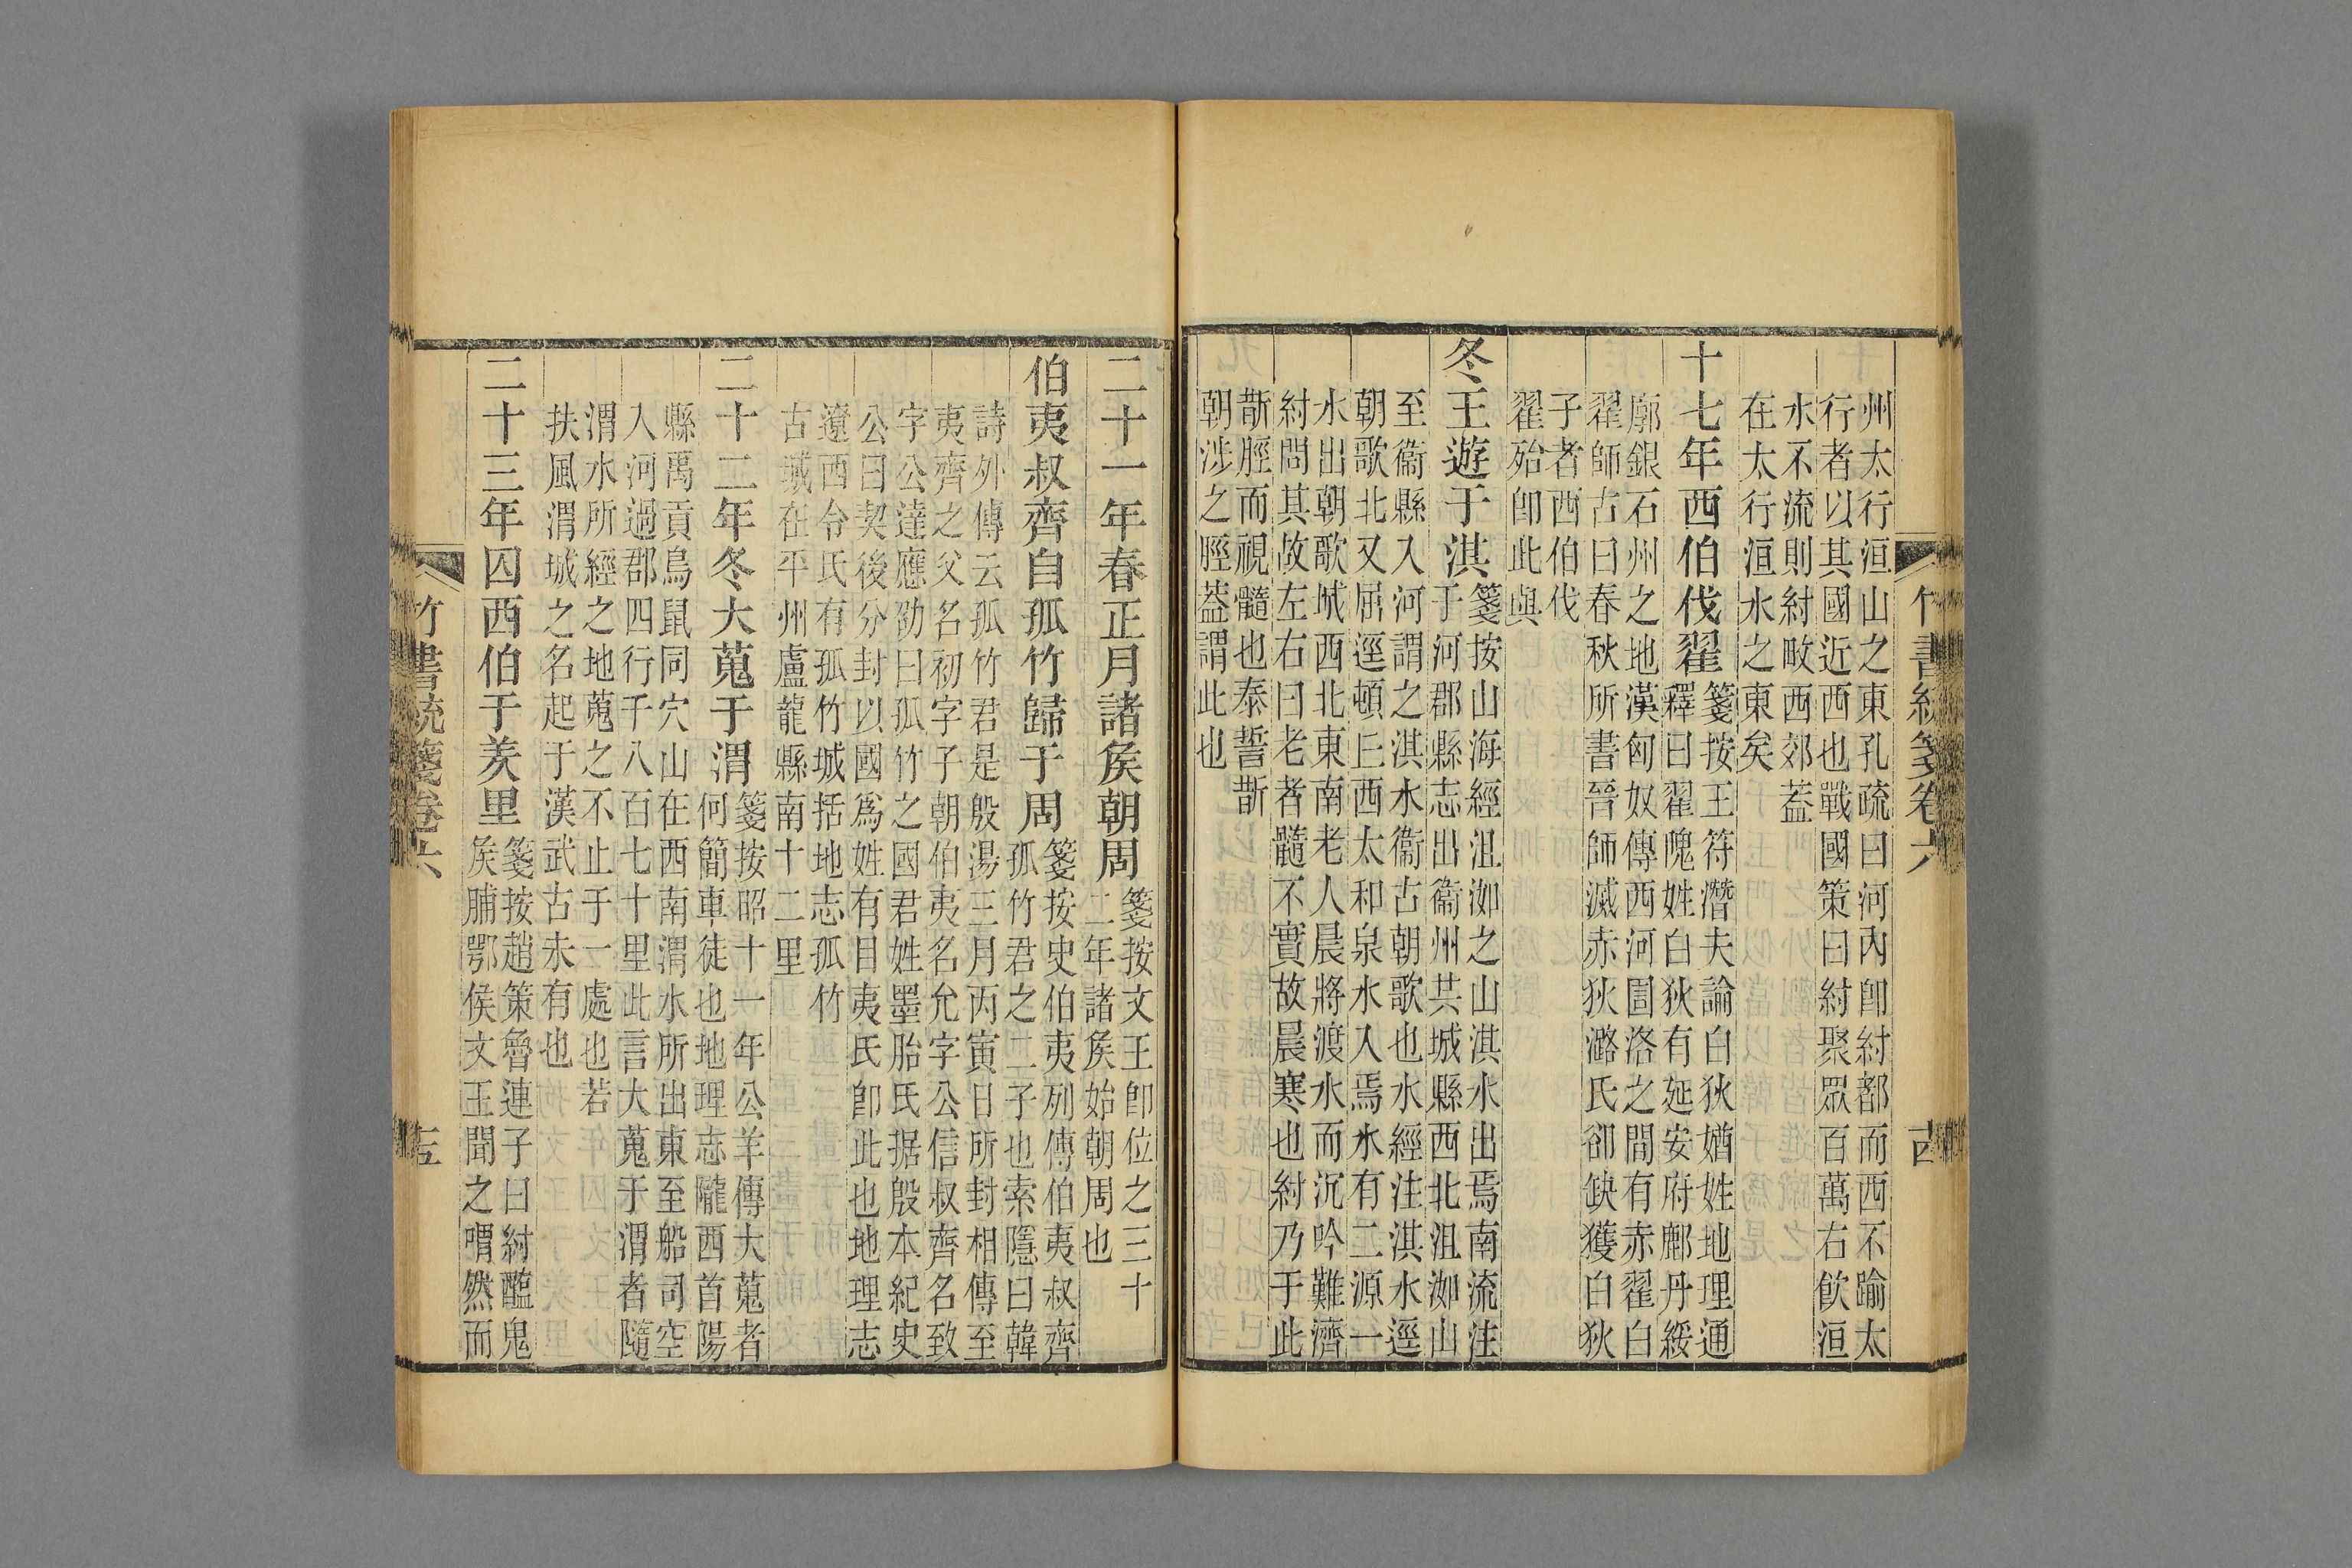 州太行洹山之東孔疏曰河內卽紂都而西不踰太
行者以其國近西也戰國策曰紂聚眾百萬右飲洹
水不流則紂畋西郊葢
在太行洹水之東矣
十七年西伯伐翟
箋按王符潛夫論白狄媨姓地理通
釋曰翟隗姓白狄有延安府鄜丹綏
廓銀石州之地漢匈奴傳西河圁洛之間有赤翟白
翟師古曰春秋所書晉師滅赤狄潞氏郤缺獲白狄
子者西伯伐
翟殆卽此與
冬王遊于淇
箋按山海經沮洳之山淇水出焉南流注
于河郡縣志出衞州共城縣西北沮洳山
至衞縣入河謂之淇水衞古朝歌也水經注淇水逕
朝歌北又屈逕頓丘西太和泉水入焉水有二源一
水出朝歌城西北東南老人晨將渡水而沉吟難濟
紂問其故左右曰老者髓不實故晨寒也紂乃于此
斮脛而視髓也泰誓斮
朝涉之脛葢謂此也
竹書統箋卷六
二十一年春正月諸矦朝周
箋按文王卽位之三十
二年諸矦始朝周也
伯夷叔齊自孤竹歸于周
箋按史伯夷列傳伯夷叔齊
孤竹君之二子也索隱曰韓
詩外傳云孤竹君是殷湯三月丙寅日所封相傳至
夷齊之父名初字子朝伯夷名允字公信叔齊名致
字公達應劭曰孤竹之國君姓墨胎氏据殷本紀史
公曰契後分封以國爲姓有目夷氏卽此也地理志
遼西令氏有孤竹城括地志孤竹
古城在平州盧龍縣南十二里
二十二年冬大蒐于渭
箋按昭十一年公羊傳大蒐者
何簡車徒也地理志隴西首陽
縣禹貢鳥鼠同穴山在西南渭水所出東至船司空
入河過郡四行千八百七十里此言大蒐于渭者隨
渭水所經之地蒐之不止于一處也若
扶風渭城之名起于漢武古未有也
二十三年囚西伯于羑里
箋按趙策魯連子曰紂醢鬼
矦脯鄂侯文王聞之喟然而
竹書統箋卷六